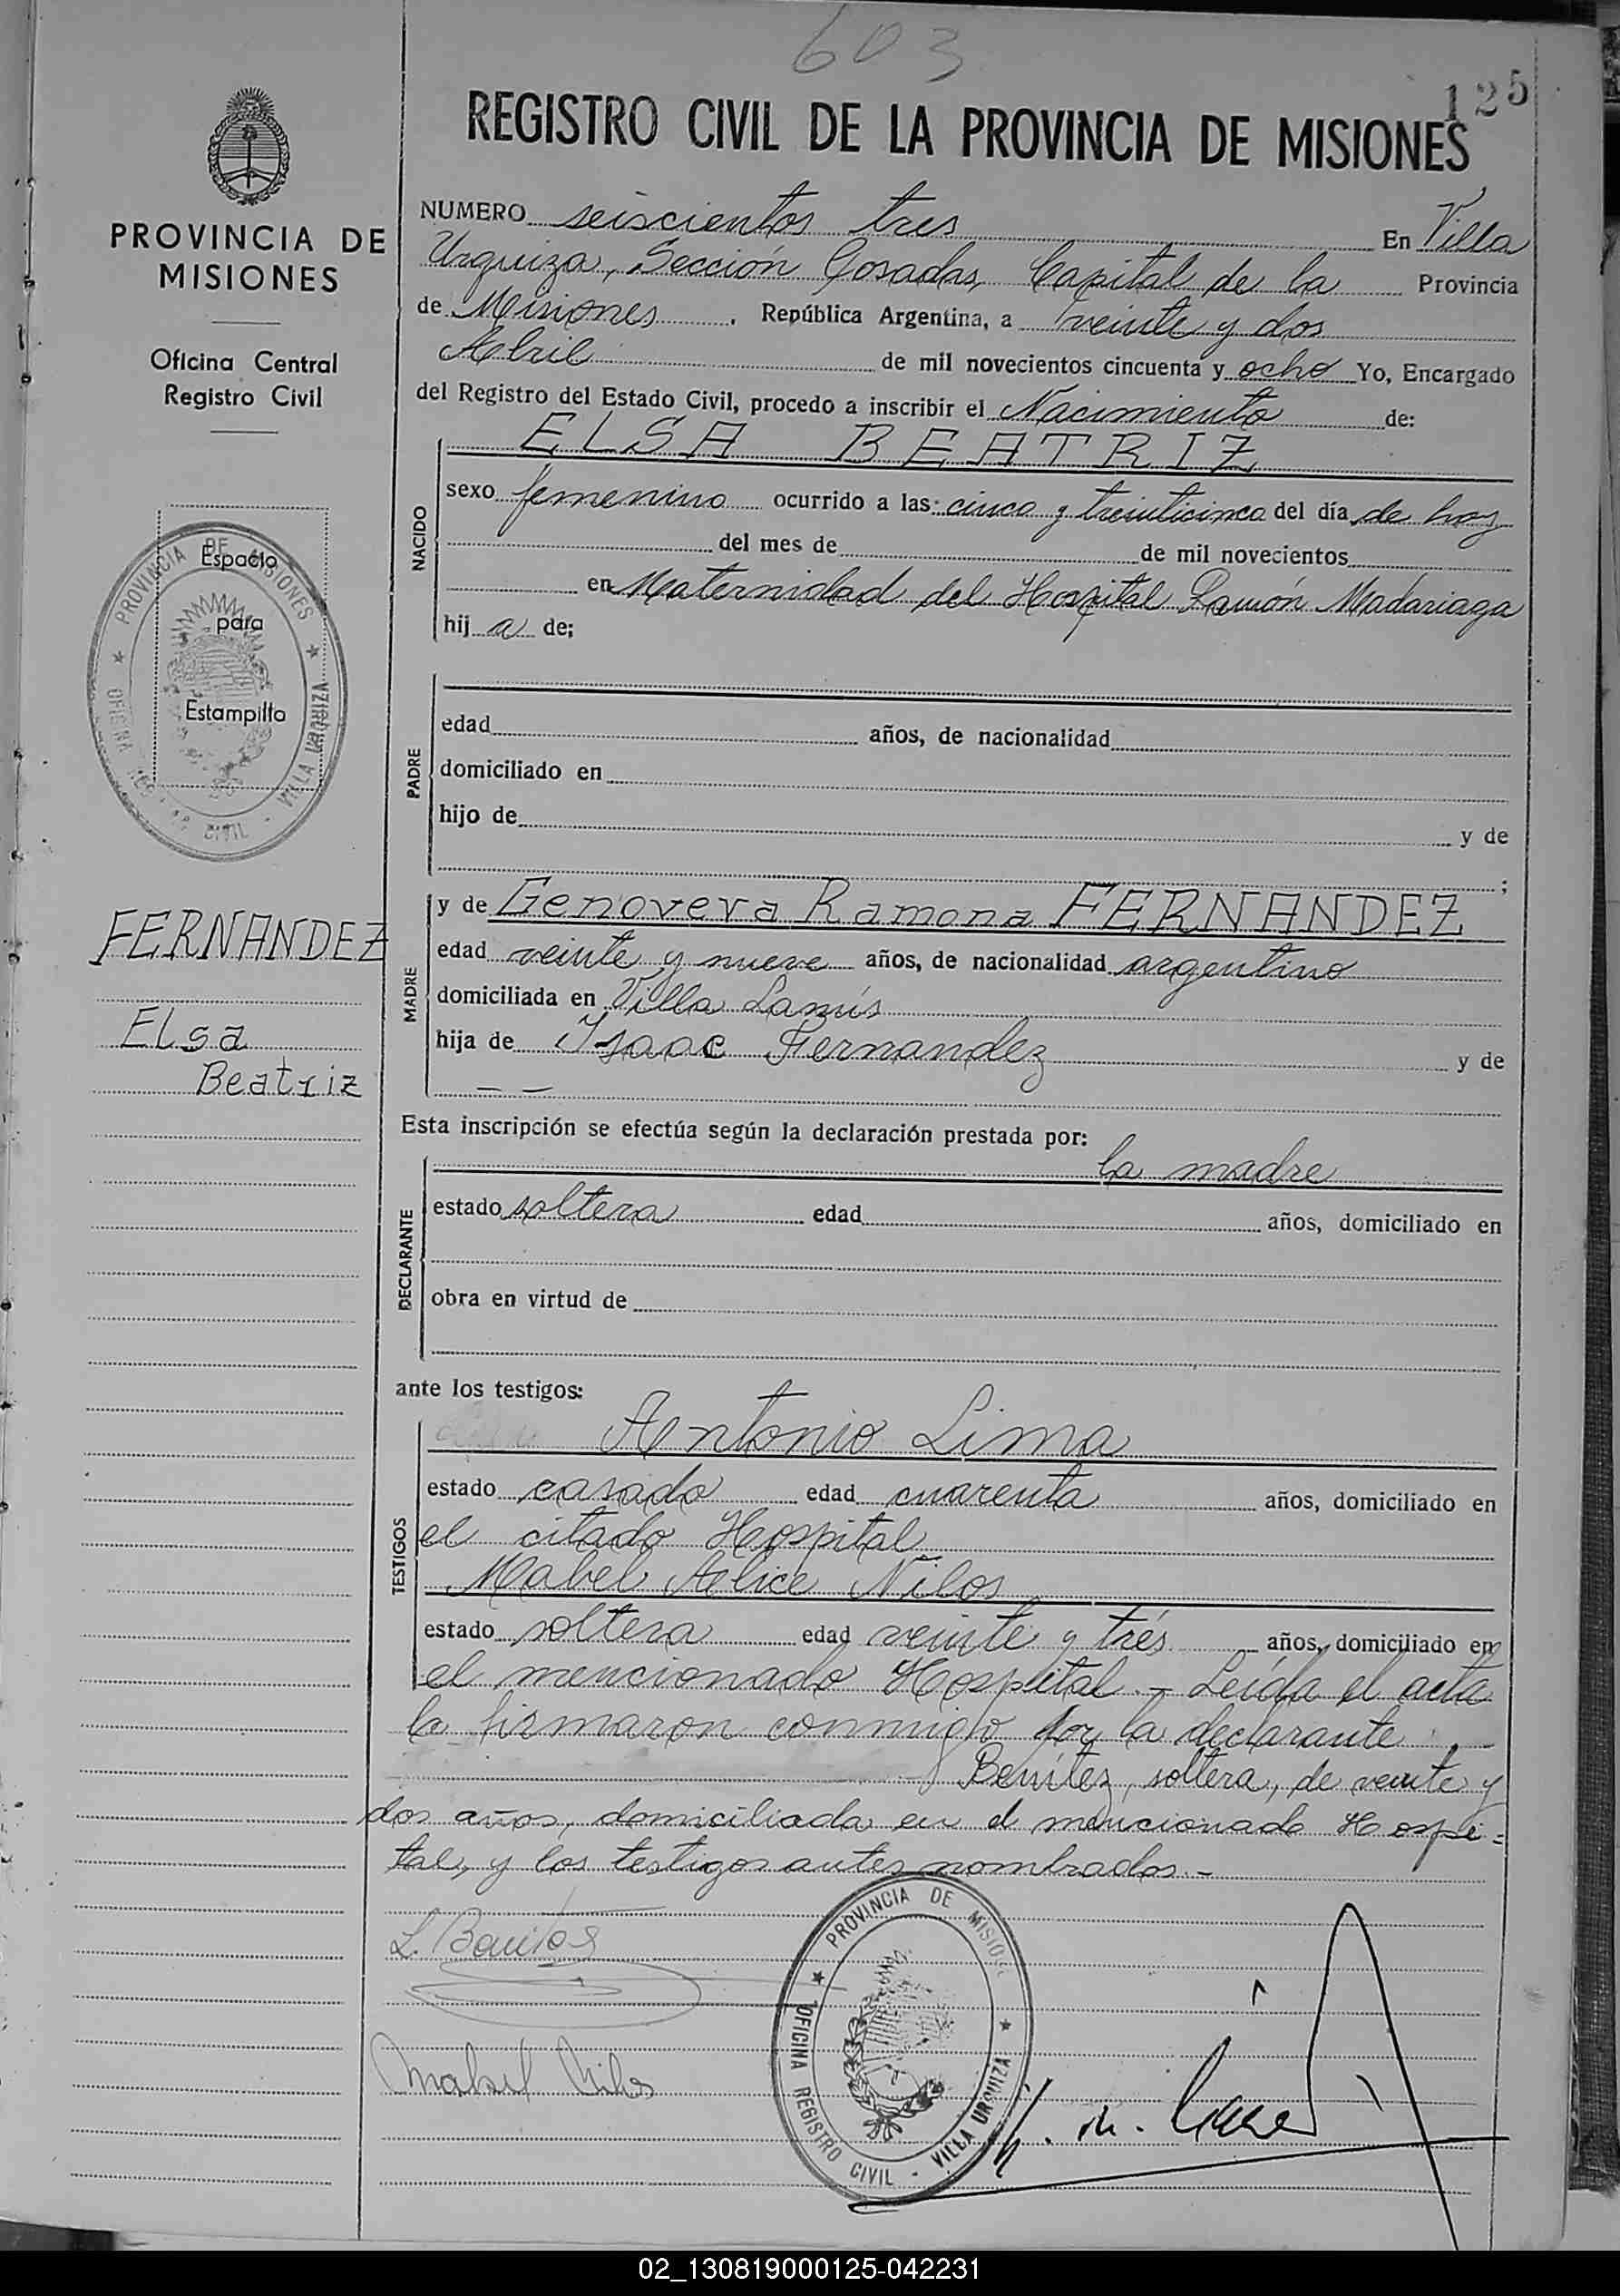 603
125
REGISTRO CIVIL DE LA PROVINCIA DE MISIONES
PROVINCIA DE
MISIONES
Oficina Central
Registro Civil
Espacio
para
Estampilla
PROVINCIA DE MISIONES
OFICINA REGISTRO CIVIL - VILLA URQUIZA
FERNANDEZ
Elsa
Beatriz
NUMERO seiscientos tres En Villa
Urquiza, Sección Posadas, Capital de la Provincia
de Misiones. República Argentina, a veinte y dos
Abril de mil novecientos cincuenta y ocho Yo, Encargado
del Registro del Estado Civil, procedo a inscribir el Nacimiento de:
NACIDO
ELSA BEATRIZ
sexo femenino ocurrido a las: cinco y treinticinco del día de hoy
del mes de de mil novecientos
en Maternidad del Hospital Ramón Madariaga
hij a de;
PADRE
edad años, de nacionalidad
domiciliado en
hijo de y de
;
MADRE
y de Genoveva Ramona FERNANDEZ
edad veinte y nueve años, de nacionalidad argentino
domiciliada en Villa Lanús
hija de Ysaac Fernandez y de
— —
Esta inscripción se efectúa según la declaración prestada por:
la madre
DECLARANTE
estado soltera edad años, domiciliado en
obra en virtud de
ante los testigos:
TESTIGOS
Antonio Lima
estado casado edad cuarenta años, domiciliado en
el citado Hospital
Mabel Alice Nilos
estado soltera edad veinte y trés años, domiciliado en
el mencionado Hospital.- Leída el acta
la firmaron conmigo por la declarante
Benítez, soltera, de veinte y
dos años, domiciliada en el mencionado Hospi=
tal, y los testigos antes nombrados.-
L. Benitez
Mabel Nilos
PROVINCIA DE MISIONES
OFICINA REGISTRO CIVIL - VILLA URQUIZA
02_130819000125-042231